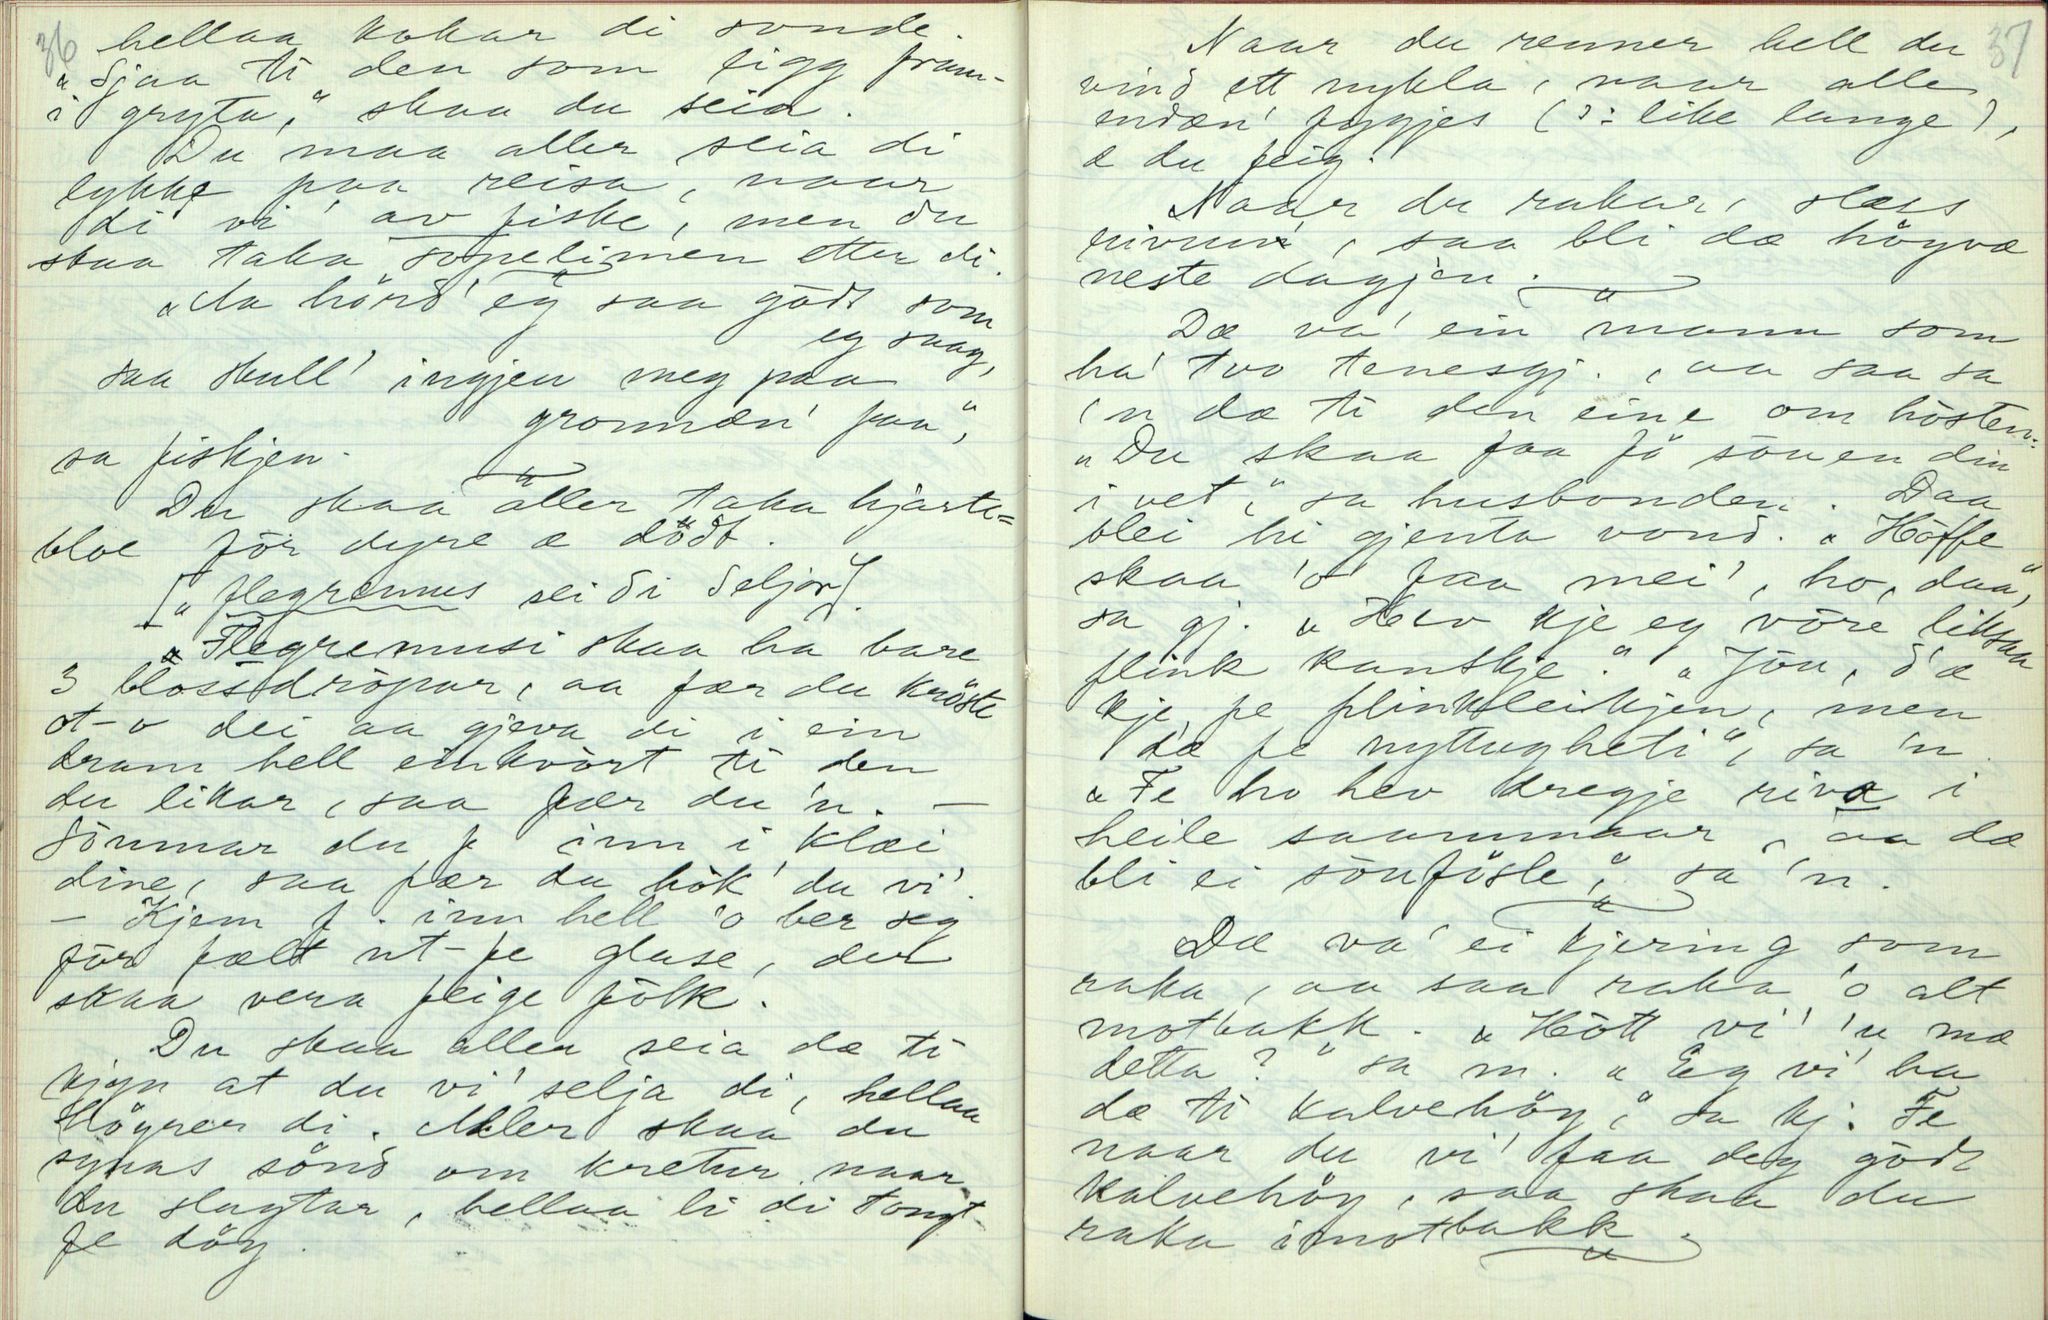 36
hellaa kokar di sonde.
„Sjaa ti den som ligg fram-
i gryta,“ skaa du seia.
Du maa aller seia di
lykke paa reisa, naar
di vi' av fiske, men du
skaa taka sopelimen etter di.
„Aa hörd' eg saa godt som
eg saag,
saa skull' ingjen meg paa
gronnæn' faa“,
sa fiskjen.
Du skaa aller taka hjarte-
bloe för dyre æ dödt.
[„flegremus sei di i Seljord].
„Flegremusi skaa ha bare
3 blossdröpar, aa fær du kröste
ot-o dei aa gjeva di i ein
dram hell einkvört ti den
du likar, saa fær du 'n. –
Sönmar du f inn i klæi
dine, saa fær du hök' du vi'.
– Kjem f. inn hell 'o ber seg
för fælt ut-fe glase, der
skaa vera feige fölk.
Du skaa aller seia dæ ti
kjyn at du vi' selja di, hellaa
högrer di. Aller skaa du
synas sönd om kretur naar
du slagtar, hellaa li di tongt
fe döy.
37
Naar du renner hell du
vind ett nykla, naar alle
endæn' fyggjes (ɔ: like lange),
æ du feig.
Naar du rakar, slæss
rivun', saa bli dæ höyvæ
neste dagjen.
Dæ va' ein mann som
ha' tvo tenesgj., aa saa sa
'n dæ ti den eine om hösten:
„Du skaa faa fö söuen din
i vet,“ sa husbonden. Daa
blei hi gjenta vond. „Höffe
skaa 'o faa mei', ho, daa“,
sa gj. „Hev kje eg vöre liksaa
flink kanskje.“ „Jöu, d'æ
kje fe flinkleikjen, men
d'æ fe nyttugheti“, sa 'n.
„Fe ho hev dregje riva i
heile saammaar, aa dæ
bli ei söufösle,“ sa 'n.
Dæ va' ei kjering som
raka, aa saa raka 'o alt
motbakk. „Hött vi' 'u mæ
detta?“ sa m. „Eg vi' ha
dæ ti kalvehöy,“ sa kj. Fe
naar du vi' faa deg godt
kalvehöy, saa skaa du
raka imotbakk.